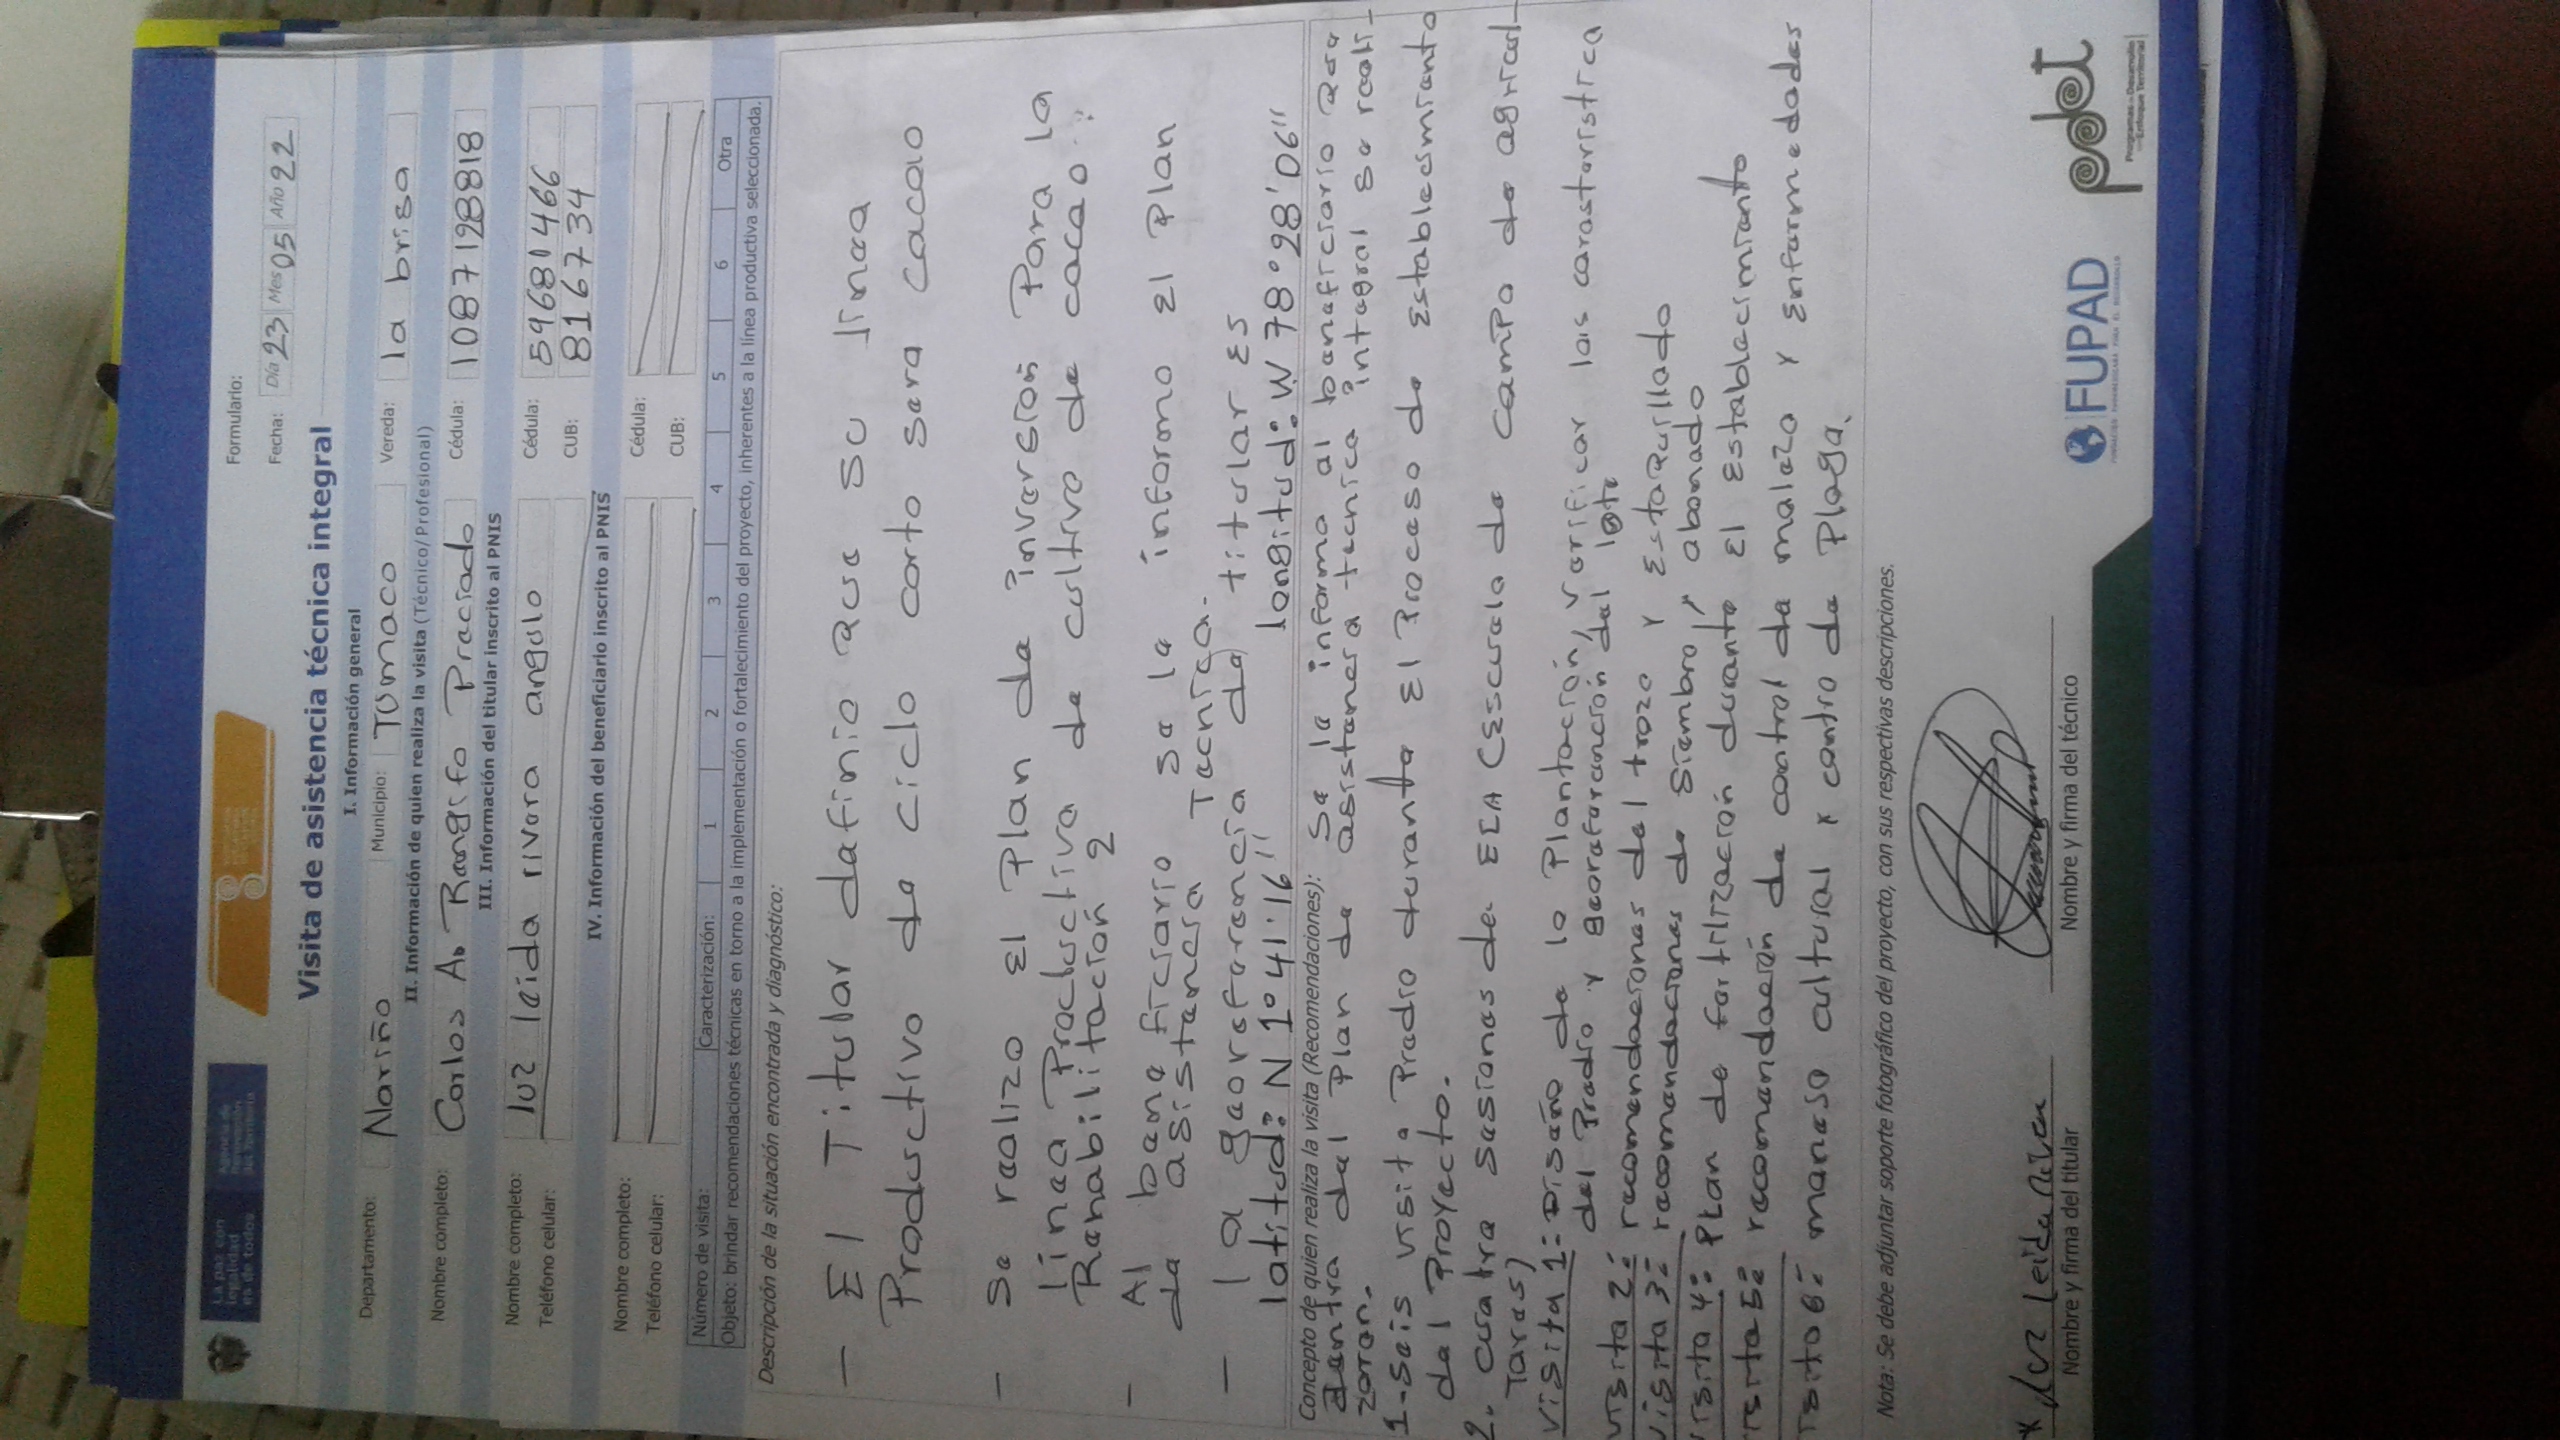 La paz con
legalidad
es de todos
Agencia de
Renovación
del Territorio
Formulario:
Visita de asistencia técnica integral
Fecha: Día 23 Mes 05 Año 22
I. Información general
Departamento: Nariño Municipio: TUmaco Vereda: la brisa
II. Información de quien realiza la visita (Técnico/Profesional)
Nombre completo: Carlos A. Rangifo Preciado Cédula: 1087198818
III. Información del titular inscrito al PNIS
Nombre completo: luz leida rivera angulo Cédula: 596801466
Teléfono celular: CUB: 8167734
IV. Información del beneficiario inscrito al PNIS
Nombre completo: Cédula:
Teléfono celular: CUB:
Número de visita: Caracterización: 1 2 3 4 5 6 Otra
Objeto: brindar recomendaciones técnicas en torno a la implementación o fortalecimiento del proyecto, inherentes a la línea productiva seleccionada.
Descripción de la situación encontrada y diagnóstico:
- El Titular definio que su linea
Productivo de ciclo corto sera cacao
- Se realizo el Plan de inversion Para la
linea Productiva de cultivo de cacao
Rehabilitación 2
- Al beneficiario se le informo el Plan
de asistencia Tecnica.
- la georeferencia del titular es
latitud: N 1°41'16" longitud: W 78°28'06"
Concepto de quien realiza la visita (Recomendaciones): Se le informo al beneficiario que
dentro del Plan de asistencia tecnica integral se reali-
zaran.
1-Seis visita Predio durante El Proceso de Establecimiento
del Proyecto.
2. cuatro Sesiones de ECA (Escuela de campo de agricul-
tores)
Visita 1: Diseño de lo Plantación, verificar las carasteristica
del Predio y georeferencion del lote
visita 2: recomendaciones del trazo y Estaquillado
visita 3: recomendaciones de siembra y abonado
visita 4: Plan de fertilización durante El Establecimiento
visita 5: recomendación de control de maleza y Enfermedades
isita 6: manejo cultural y contro de Plaga.
Nota: Se debe adjuntar soporte fotográfico del proyecto, con sus respectivas descripciones.
x luz leida river
Nombre y firma del titular
Nombre y firma del técnico
FUPAD
pdet
Programas de Desarrollo
con Enfoque Territorial